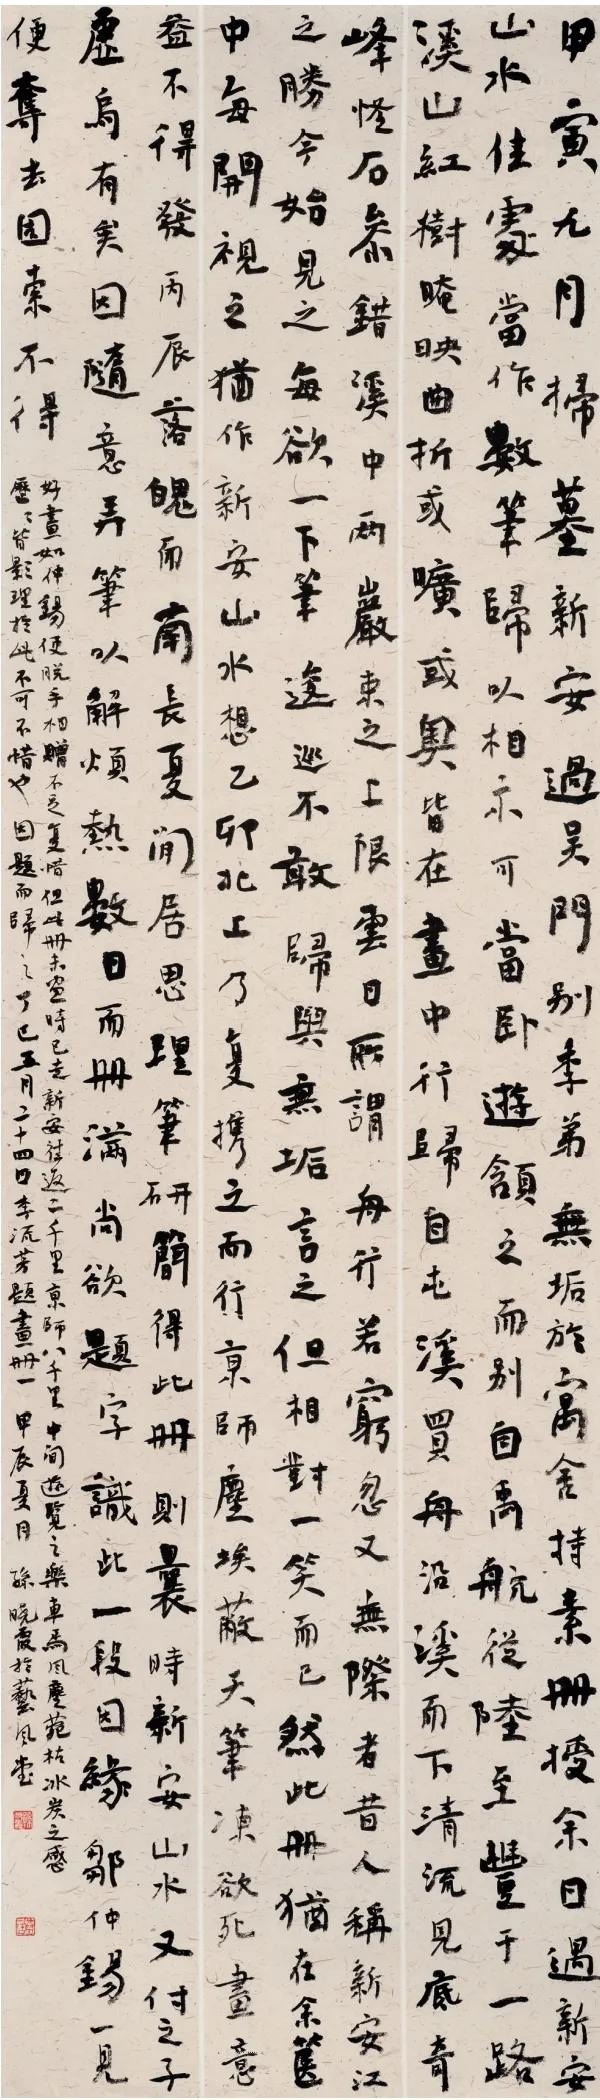 甲寅九月掃墓新安過吴門别季弟無垢於寓舍持素冊授余曰過新安
山水佳處當作數筆歸以相示可當卧遊頷之而别自禹航從陸至豐于一路
溪山紅樹晻映曲折或曠或奥皆在畫中行歸自屯溪買舟沿溪而下清流見底奇
峰怪石參錯溪中兩巖束之上限雲日所謂舟行若窮忽又無際者昔人稱新安江
之勝今始見之每欲一下筆逡巡不敢歸與無垢言之但相對一笑而已然此冊猶在余篋
中每開視之猶作新安山水想乙卯北上乃复携之而行京師塵埃蔽天筆凍欲死畫意
益不得發丙辰落魄而南長夏閒居思理筆研簡得此冊則曩時新安山水又付之子
虚烏有矣因隨意弄筆以解煩熱數日而冊滿尚欲題字識此一段因緣鄒仲錫一見
便奪去因索不得
好畫如仲錫便脱手相贈不足复惜但此冊未畫時已走新安往返二千里京師八千里中间遊覽之樂車馬風塵菀枯冰炭之感
歷歷皆影現於此不可不惜也因題而歸之丁巳五月二十四日李流芳題畫冊一 甲辰夏月 孫曉霞於藝風堂